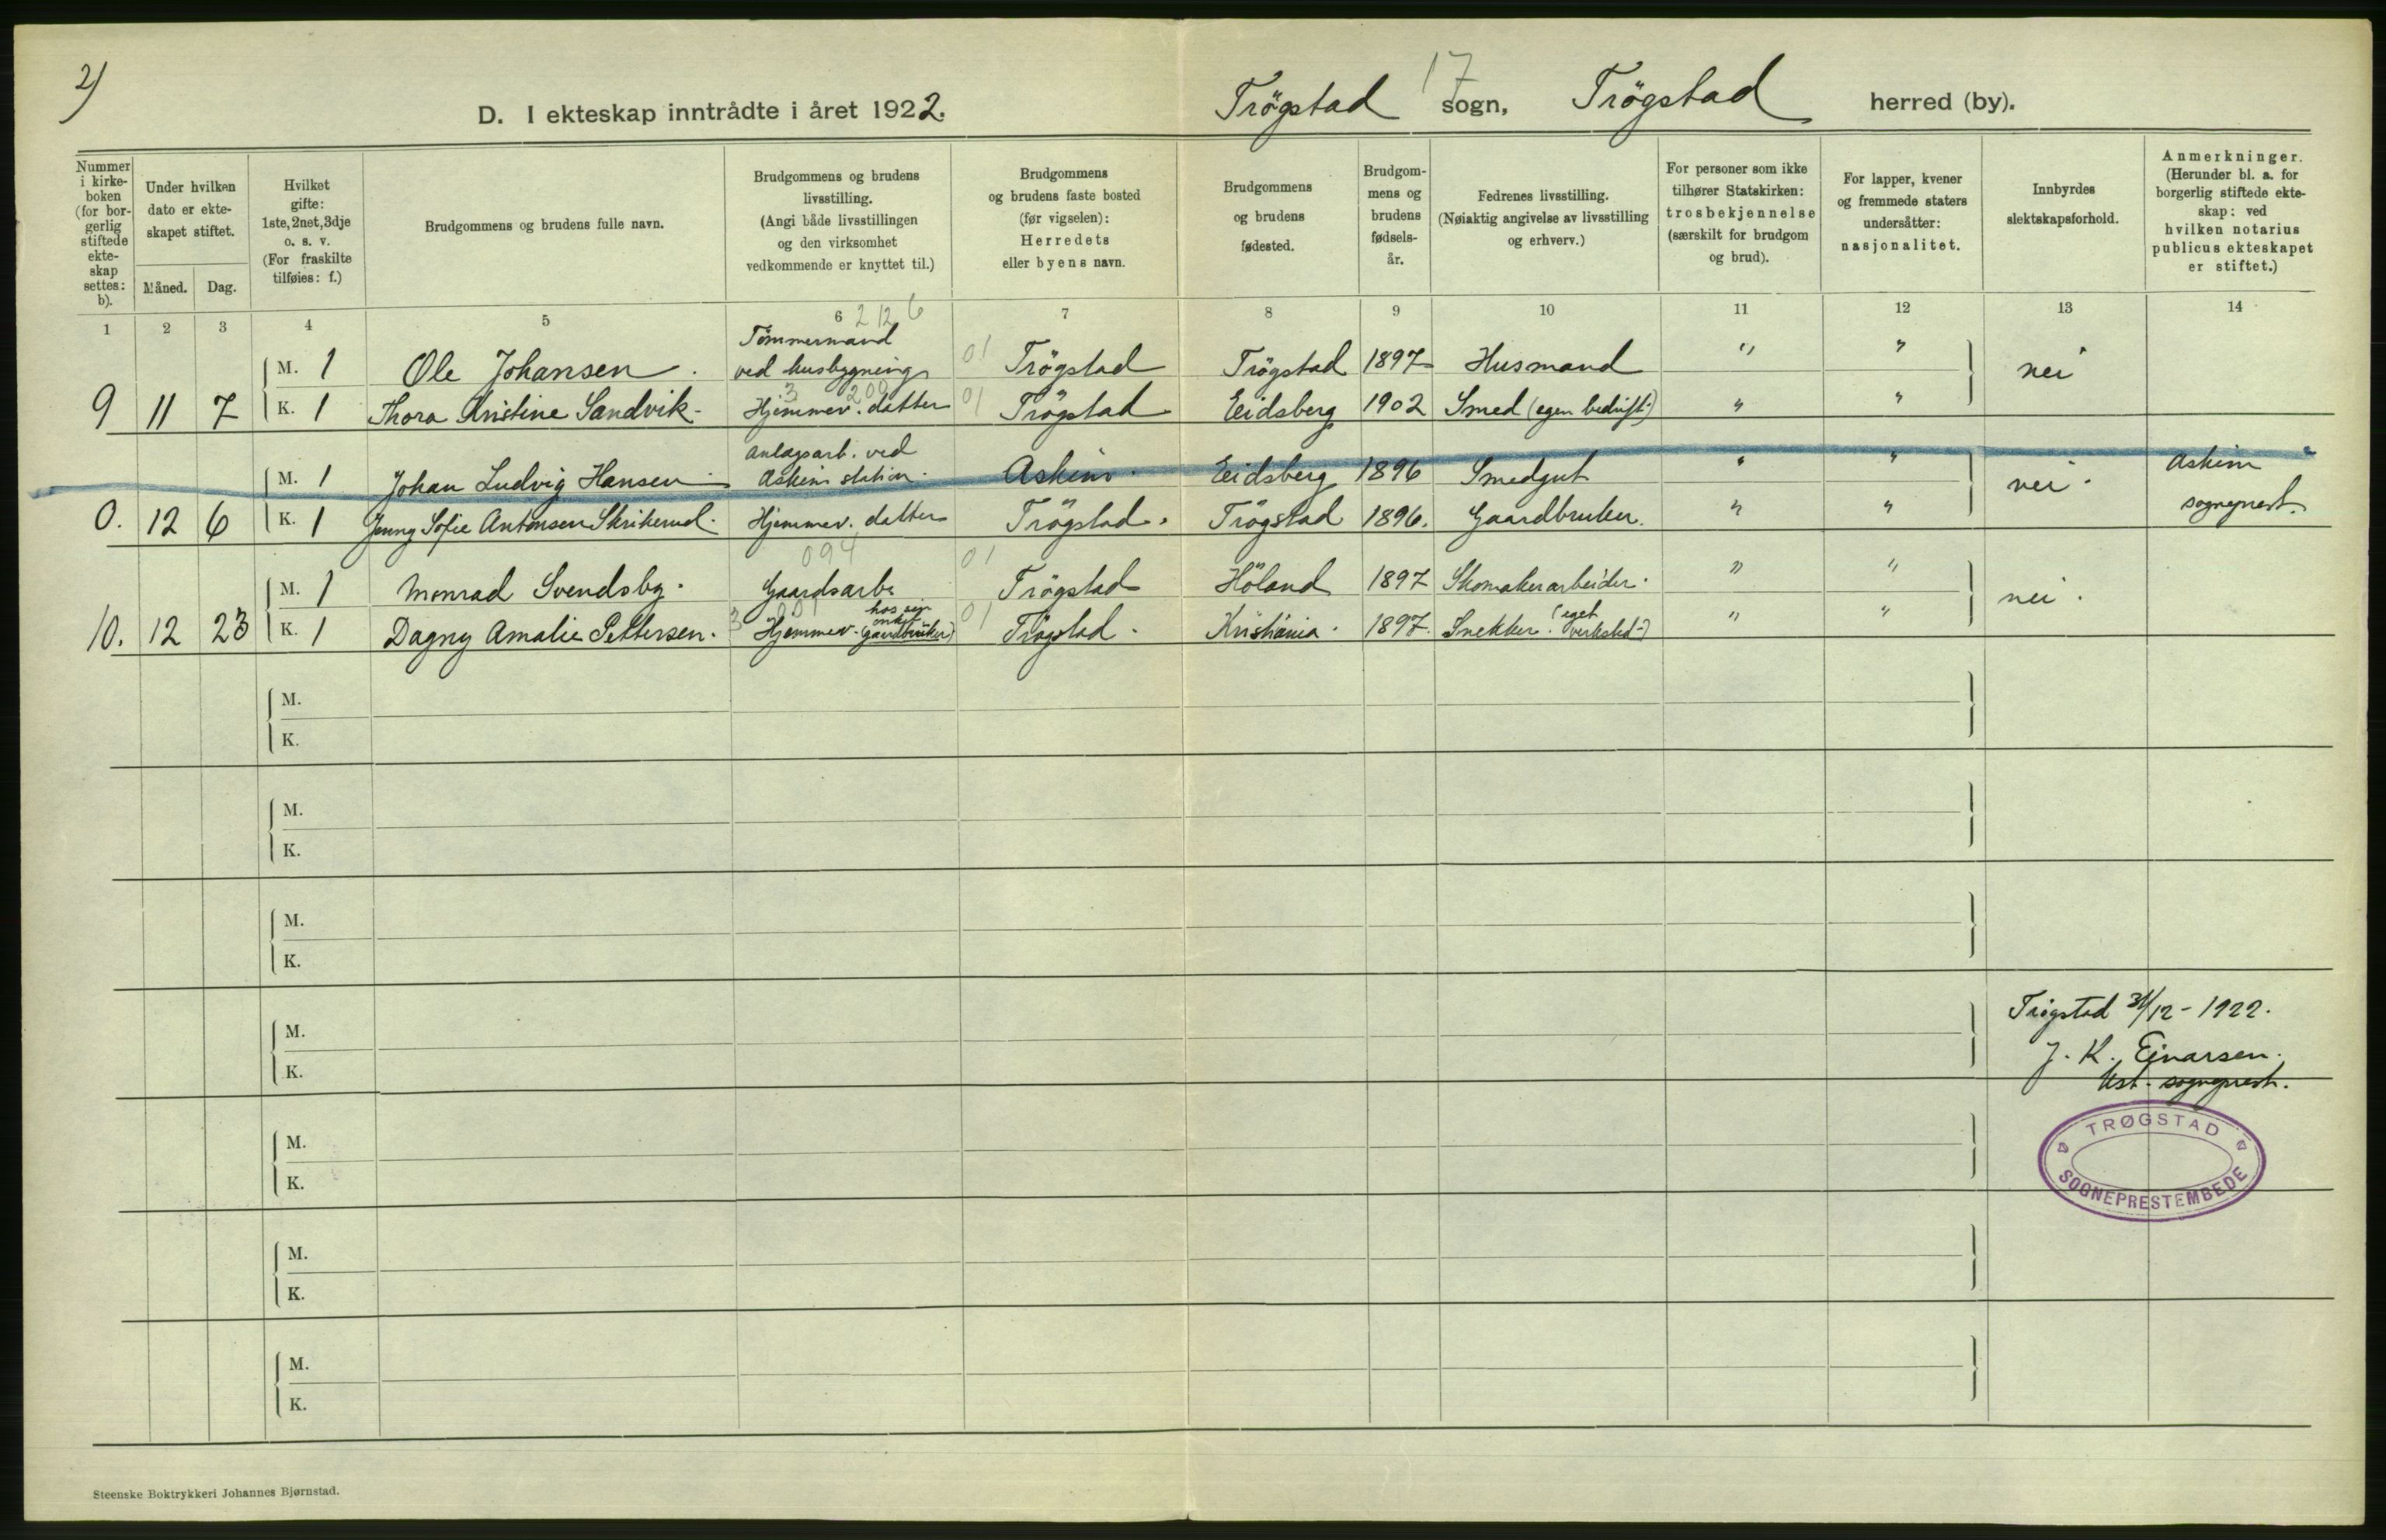 2)
D. I ekteskap inntrådte i året 1922.
Trögstad sogn, Trögstad herred (by).
17
Nummer i kirke-boken (for bor-gerlig stiftede ekte-skap settes: b).
Under hvilken dato er ekte-skapet stiftet.
Måned. Dag.
Hvilket gifte: 1ste, 2net, 3dje o. s. v. (For fraskilte tilføies: f.)
Brudgommens og brudens fulle navn.
Brudgommens og brudens livsstilling. (Angi både livsstillingen og den virksomhet vedkommende er knyttet til.)
Brudgommens og brudens faste bosted (før vigselen): Herredets eller byens navn.
Brudgommens og brudens fødested.
Brudgom-mens og brudens fødsels-år.
Fedrenes livsstilling. (Nøiaktig angivelse av livsstilling og erhverv.)
For personer som ikke tilhører Statskirken: trosbekjennelse (særskilt for brudgom og brud).
For lapper, kvener og fremmede staters undersåtter: nasjonalitet.
Innbyrdes slektskapsforhold.
Anmerkninger. (Herunder bl. a. for borgerlig stiftede ekte-skap: ved hvilken notarius publicus ekteskapet er stiftet.)
1 2 3 4 5 6 7 8 9 10 11 12 13 14
2 12 6
M. 1 Ole Johansen. Tömmermand ved husbygning 01 Trögstad Trögstad 1897 Husmand " " nei
9 11 7 K. 1 Thora Kristine Sandvik - Hjemmev. datter 01 Trögstad Eidsberg 1902 Smed (egen bedrift) " "
3 200
M. 1 Johan Ludvig Hansen anlagsarb. ved Askim station. Askim. Eidsberg 1896 Smedgut " " nei. Askim
0. 12 6 K. 1 Jenny Sofie Antonsen Skrikerud. Hjemmev. datter Trögstad. Trögstad 1896. Gaardbruker. " " sogneprest.
094 01
M. 1 Monrad Svendsby. Gaardsarb. Trögstad Höland 1897 Skomakerarbeider. " " nei.
10. 12 23 K. 1 Dagny Amalie Pettersen. 3 Hjemmev. (gaardbruker) hos sin 01 Trögstad. Kristiania. 1897. Snekker. (eget verksted-) " "
M.
K.
M.
K.
M.
K.
M.
K.
Trögstad 31/12 - 1922.
J. K. Ejnarsen.
kst. sogneprest.
M.
K.
TRØGSTAD
SOGNEPRESTEMBEDE
M.
K.
M.
K.
Steenske Boktrykkeri Johannes Bjørnstad.